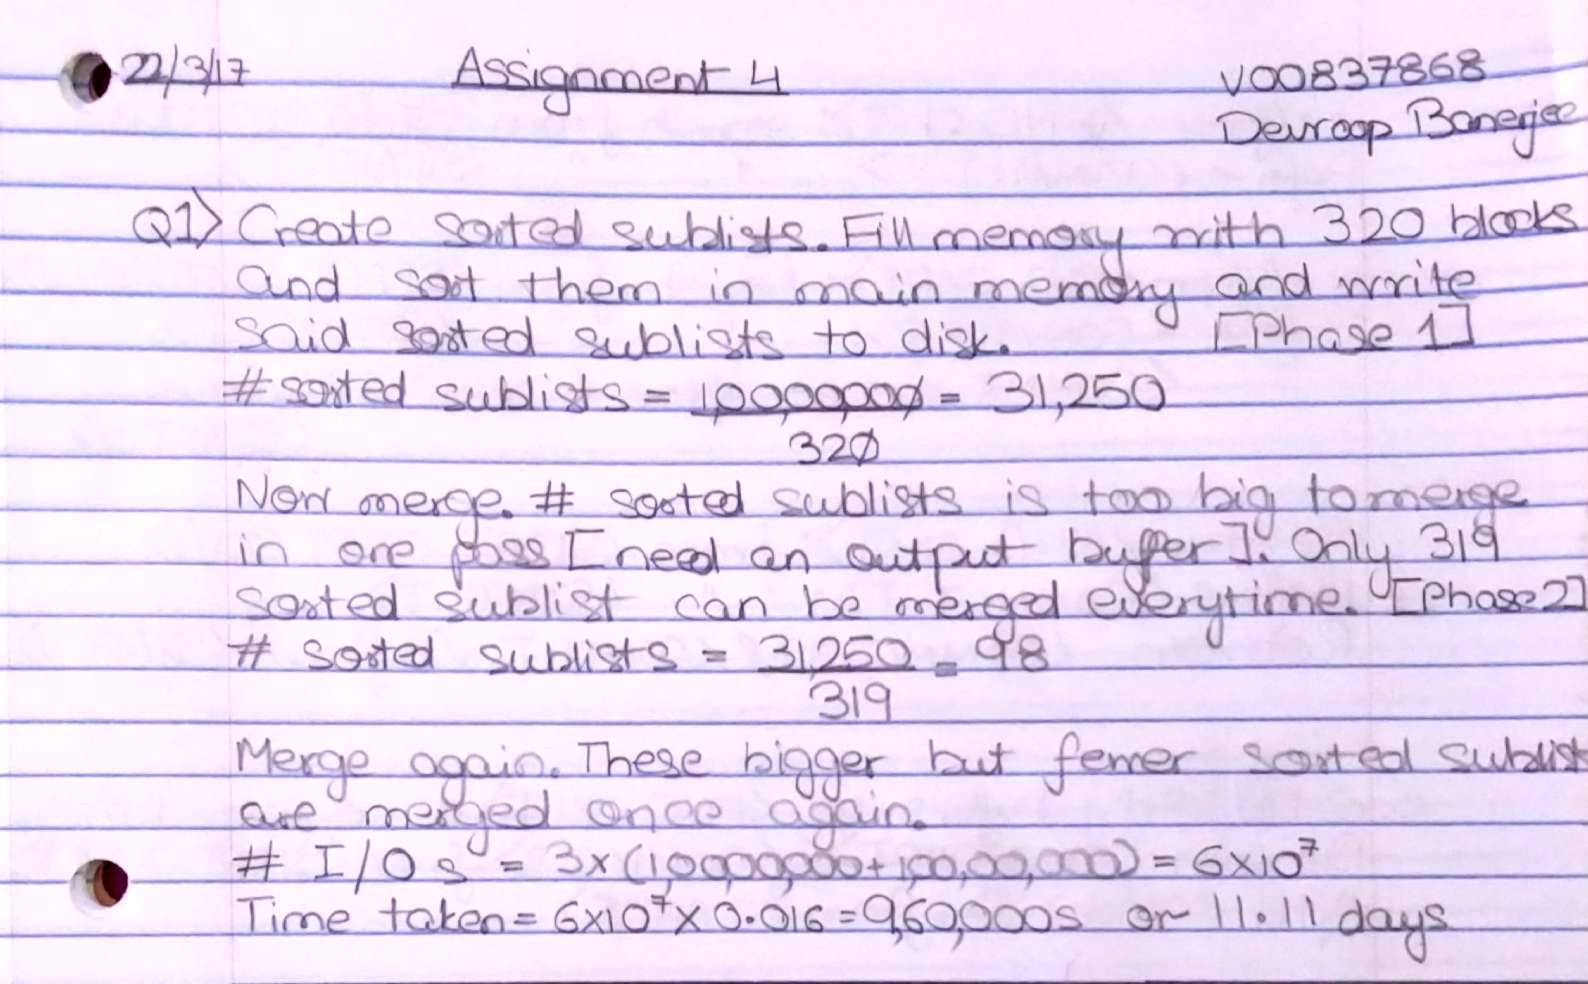 22/3/17 Assignment 4 V00837868
Devroop Banerjee
Q1> Create sorted sublists. Fill memory with 320 blocks
and sort them in main memory and write
said sorted sublists to disk. [Phase 1]
# sorted sublists = 1,00,00,000 = 31,250
320
Now merge. # sorted sublists is too big to merge
in one pass [need an output buffer]. Only 319
sorted sublist can be merged everytime. [Phase 2]
# sorted sublists = 31,250 = 98
319
Merge again. These bigger but fewer sorted sublist
are merged once again.
# I/O s = 3x(1,00,00,000+1,00,00,000) = 6x10⁷
Time taken = 6x10⁷ x 0.016 = 9,60,000s or 11.11 days